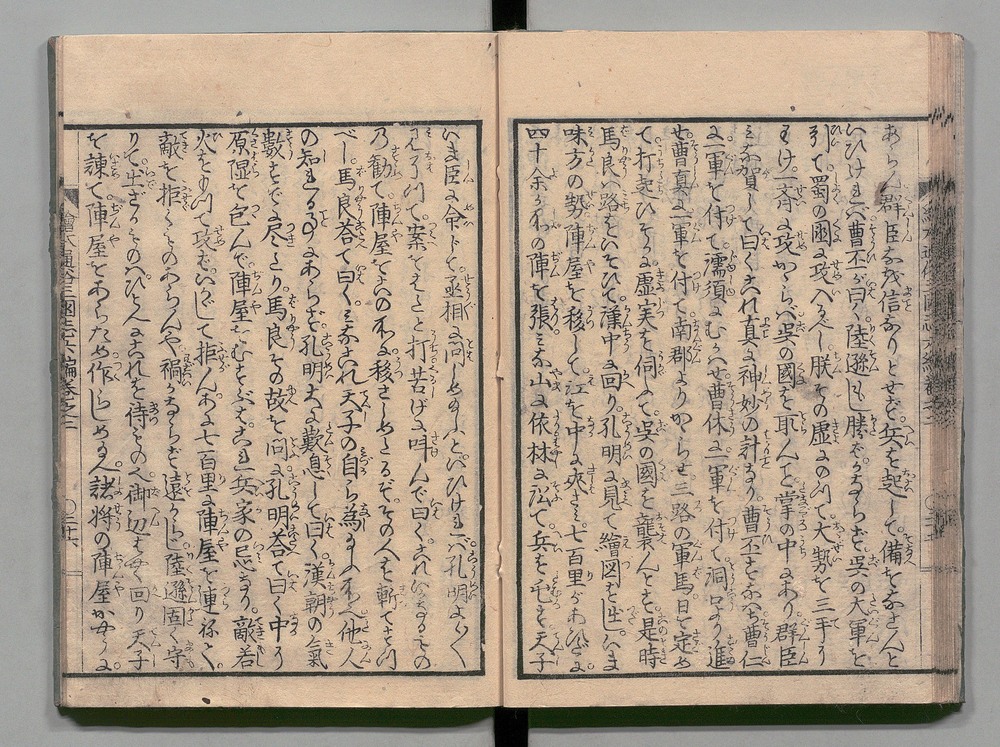 あらん群臣なほ信なりとせず。兵を起して備をなさんと
いひければ曹丕が曰く。陸遜もし勝ばかならず呉の大軍を
引て。蜀の國に攻べるべし朕その虚にのつて大勢を三手に
わけ一斉に攻かゝらば呉の國を取んこと掌の中にあり。群臣
みな賀して曰くこれ真に神妙の計なり。曹丕すなはち曹仁
に一軍を付て濡須にむかはせ曹休に一軍を付て洞口より進
せ。曹真に一軍を付て南郡よりかゝらせ三路の軍馬日を定め
て打起ひそかに虚実を伺ふて。呉の國を襲んとす。是時
馬良は路をいそひで漢中に回り。孔明に見て繪図を出し。いま
味方の勢陣屋を移して江を中に夾さみ。七百里があひだに
四十余ヶ所の陣を張みな山に依林に沿て。兵を屯す天子
いま臣に命じて。丞相に問しめ玉ふといひければ孔明よく〱
見了つて。案をはたと打苦げに叫んで曰く。これいかなるもの
乃勧て陣屋をこの所に移さしめたるぞ。その人を斬てすつ
べし。馬良答て曰く。みなこれ天子の自ら為玉ふ所にて他人
の知れる事にあらず。孔明また歎息して曰く漢朝の氣
數すでに尽たり。馬良その故を問ふ。孔明答て曰く中
原隰を包んで陣屋をむすぶことは兵家の忌なり。敵若
火をもつて攻ばいかんして拒ん。あに七百里に陣屋を連ねて。
敵を拒ぐものあらんや。禍かならず遠からじ。陸遜固く守
りて。出ざるものは。ひとへにこれを待ものぞ。御辺はやく回り天子
を諫て。陣屋をあらため作らしめよ。諸将の陣屋かやうに
繪本通俗三國志六編巻之二 〇三十六